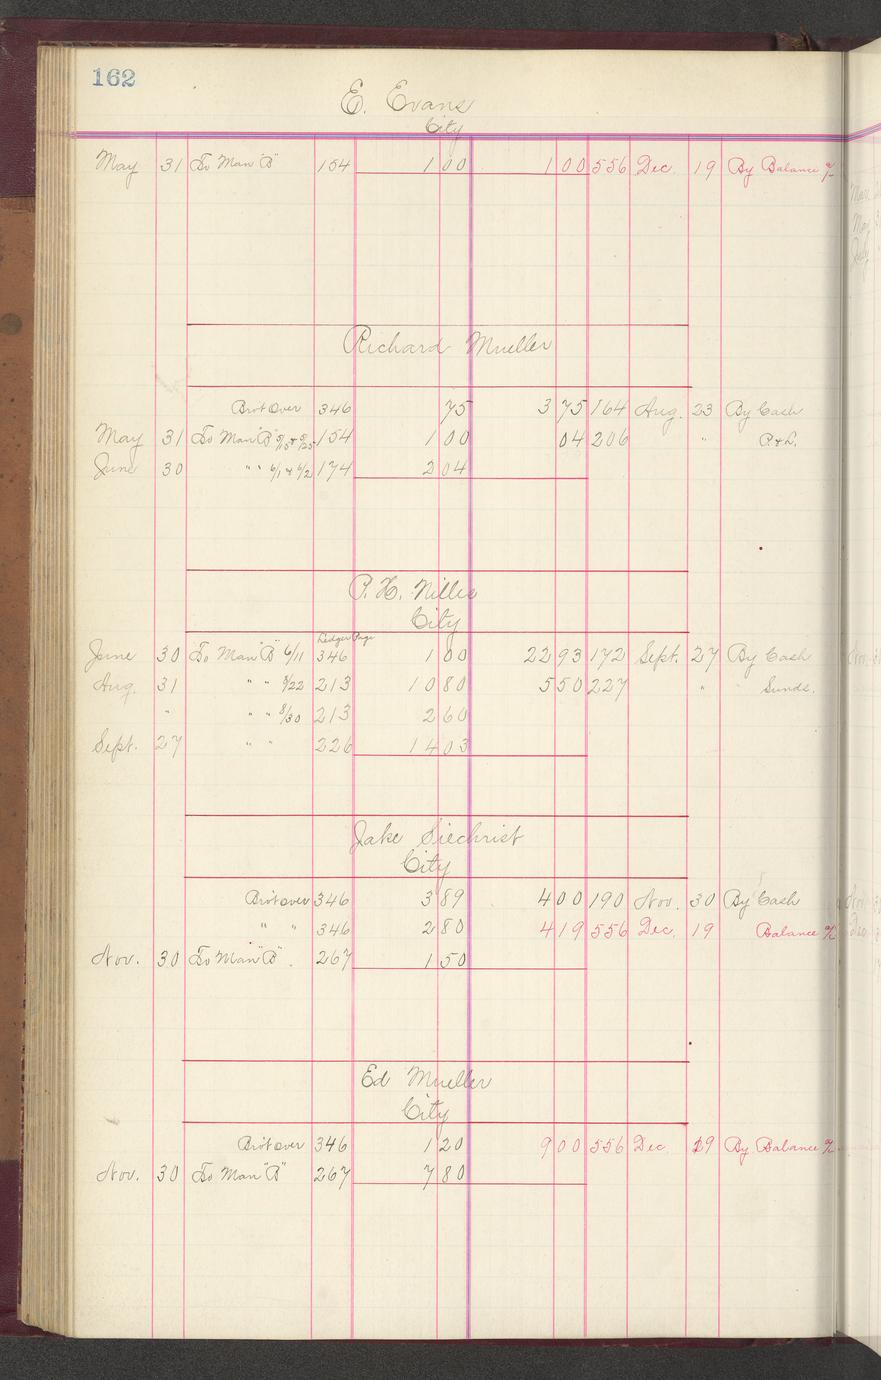 162
E. Evans
City
May 31 To Man "B" 154 1 00 1 00 556 Dec. 19 By Balance %
Richard Mueller
Bro't Over 346 75 3 75 164 Aug. 23 By Cash
May 31 To Man "B" 5/15 & 5/25 154 1 00 04 206 " P. & L.
June 30 " " 6/1 & 6/2 174 2 04
City
Ledger Page
June 30 To Man "B" 6/11 346 1 00 22 93 172 Sept. 27 By Cash
Aug. 31 " " 8/22 213 10 80 5 50 227 " Sunds.
" " " 8/30 213 2 60
Sept. 27 " " 226 14 03
Jake Siechrist
City
Bro't over 346 3 89 4 00 190 Nov. 30 By Cash
" " 346 2 80 4 19 556 Dec. 19 Balance %
Nov. 30 To Man "B". 267 1 50
Ed Mueller
City
Bro't over 346 1 20 9 00 556 Dec. 19 By Balance %
Nov. 30 To Man "B" 267 7 80